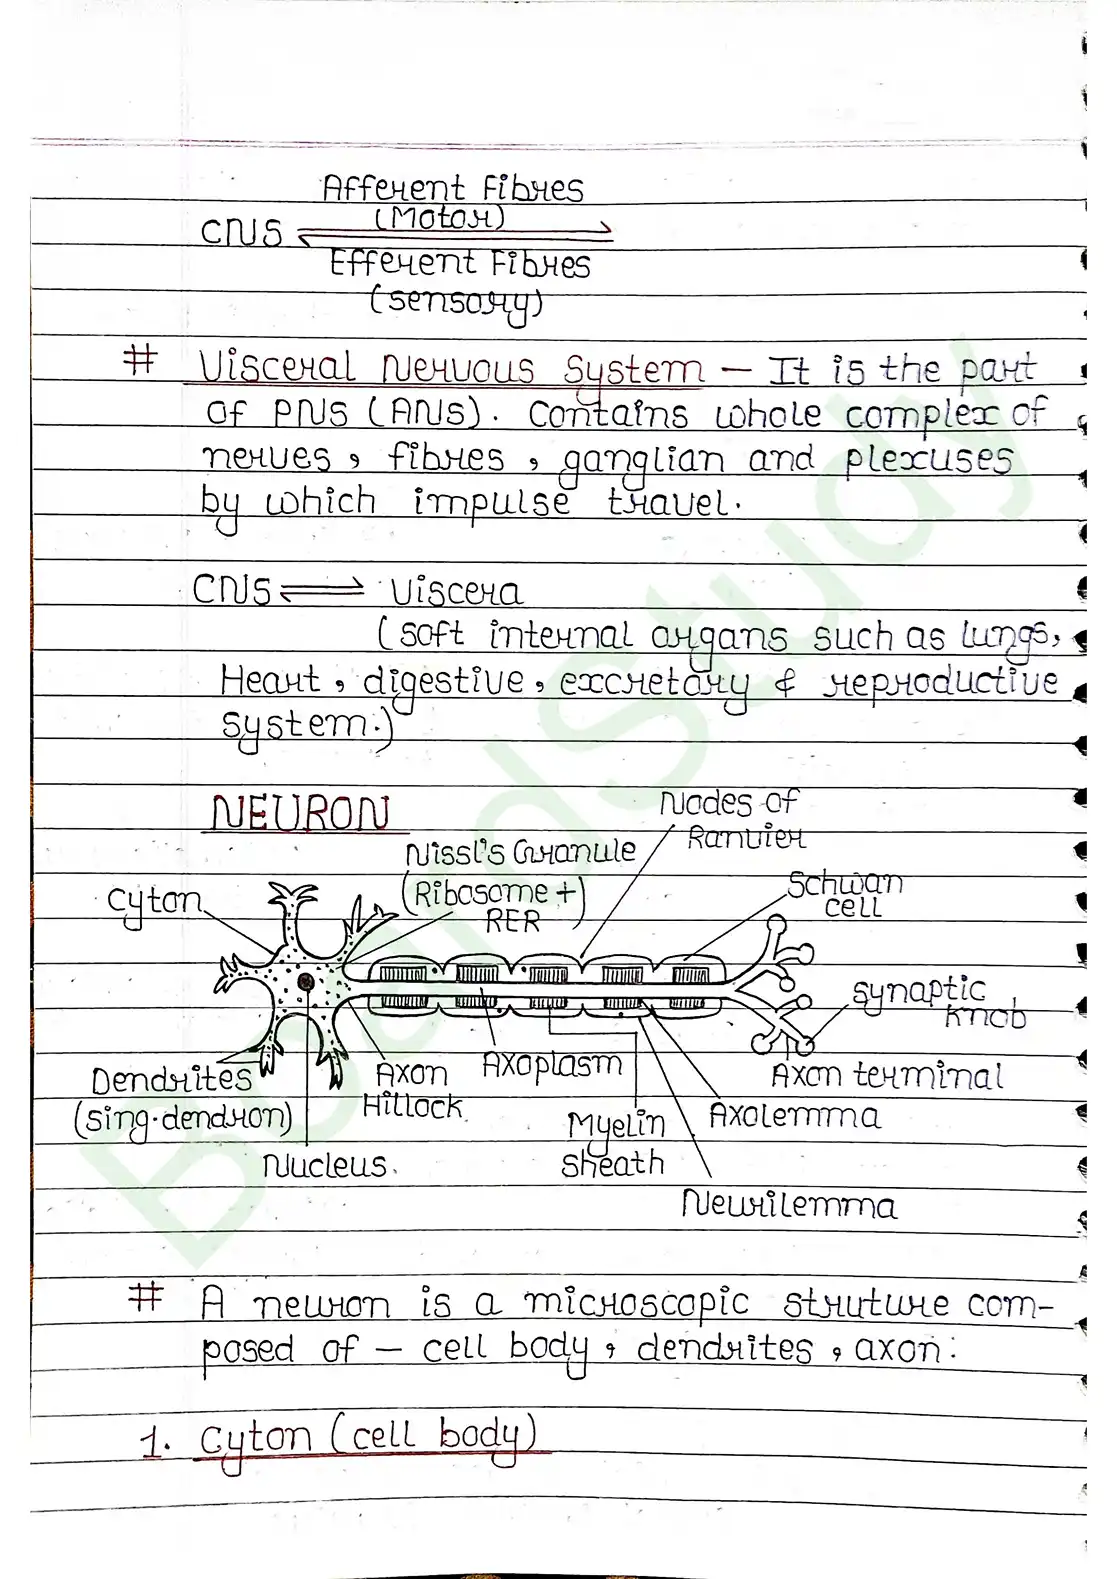 Afferent Fibres
(Motor)
CNS
Efferent Fibres
(sensory)
# Visceral Nervous System – It is the part
of PNS (ANS). Contains whole complex of
nerves, fibres, ganglian and plexuses
by which impulse travel.
CNS Viscera
(soft internal organs such as lungs,
Heart, digestive, excretory & reproductive
system.)
NEURON
Nodes of
Ranvier
Nissl's Granule
(Ribosome +)
RER
Cyton
Schwan
cell
synaptic
knob
Dendrites
(sing.dendron)
Axon
Hillock
Axoplasm
Axon terminal
Axolemma
Myelin
sheath
Nucleus.
Neurilemma
# A neuron is a microscopic struture com-
posed of – cell body, dendrites, axon:
1. Cyton (cell body)
BoardStudy